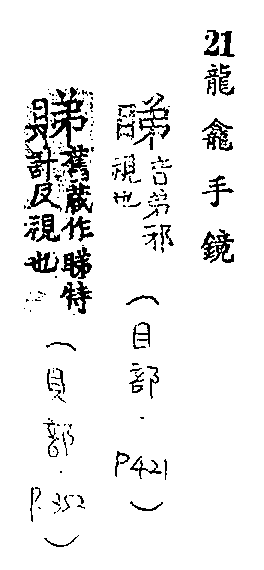 21龍龕手鏡
睇音弟邪
視也
(目部.P421)
舊藏作睇特
計反視也
(貝部.P.352)